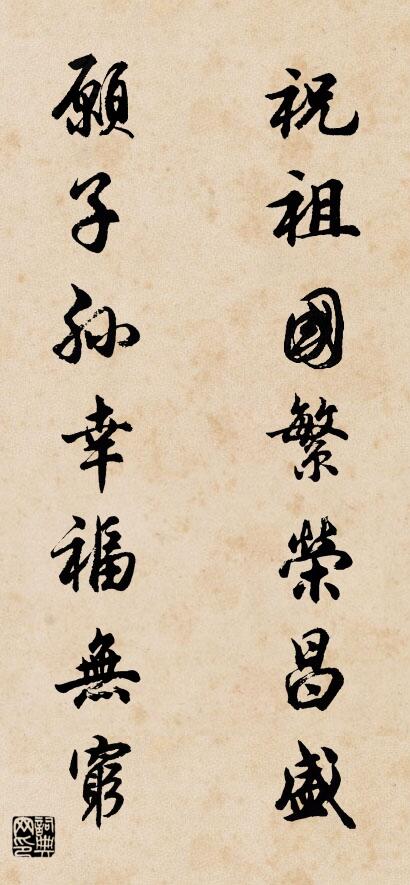 祝祖國繁榮昌盛
願子孫幸福無窮
詞典网印